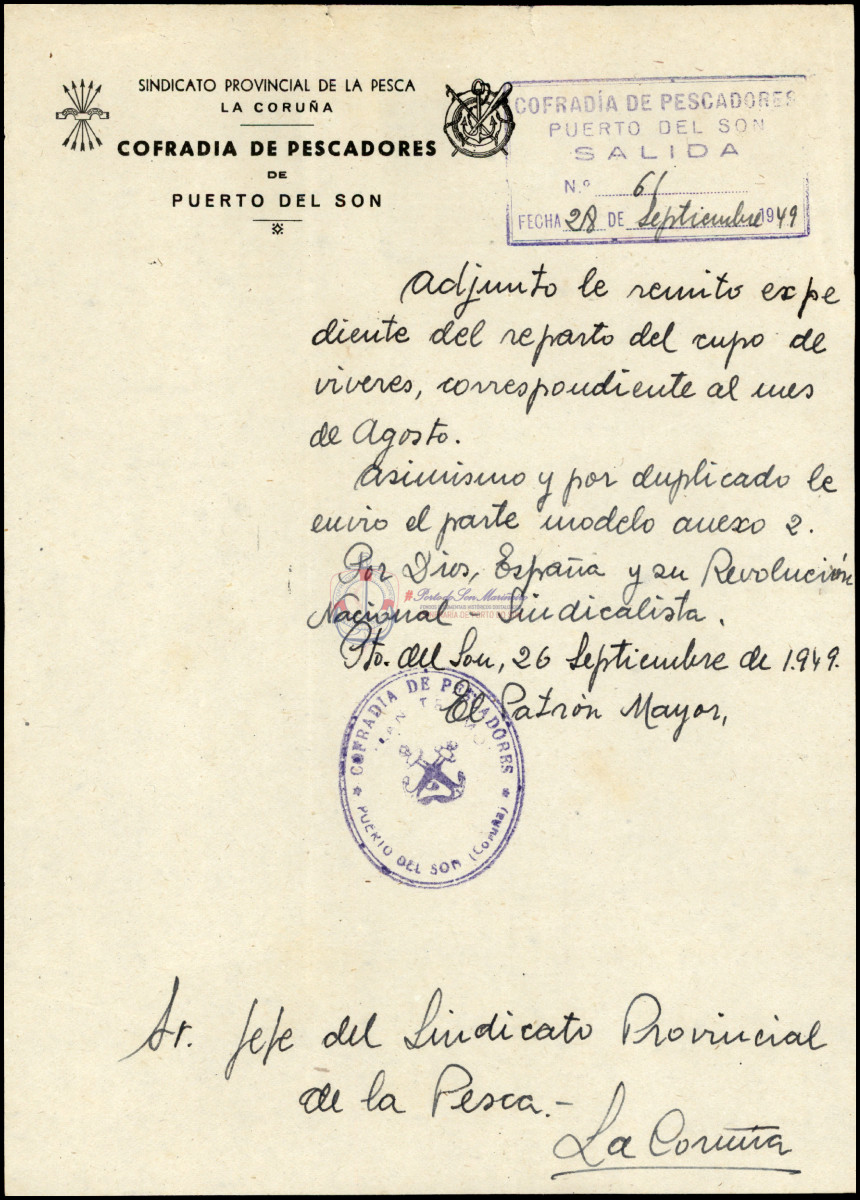 SINDICATO PROVINCIAL DE LA PESCA
LA CORUÑA
COFRADIA DE PESCADORES
DE
PUERTO DEL SON
COFRADÍA DE PESCADORES
PUERTO DEL SON
SALIDA
N.º 61
FECHA 28 DE Septiembre 1949
Adjunto le remito expe
diente del reparto del cupo de
viveres, correspondiente al mes
de Agosto.
Asimismo y por duplicado le
envio el parte modelo anexo 2.
Por Dios, España y su Revolución
Nacional Sindicalista.
#Porto do Son Mariñeiro
Pto. del Son, 26 Septiembre de 1.949.
El Patrón Mayor,
COFRADIA DE PESCADORES
SAN TELMO
PUERTO DEL SON (Coruña)
Sr. Jefe del Sindicato Provincial
de la Pesca.-
La Coruña